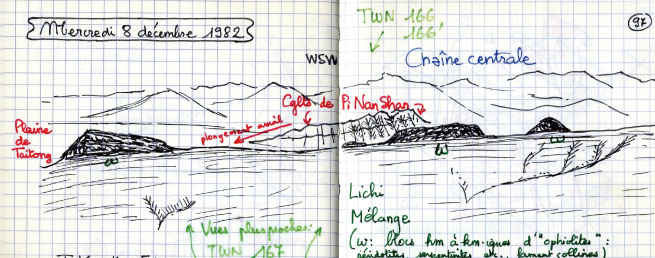 Mercredi 8 décembre 1982
97
TWN 166
166'
WSW
Chaîne centrale
Cglts de Pi Nan Shan
plongement
Plaine
de
Taitong
ω
ω
ω
Lichi
Mélange
Vues plus proches:
TWN 167
(ω: blocs hm à km-iques d'"ophiolites":
péridotites, serpentinites etc., formant collines)